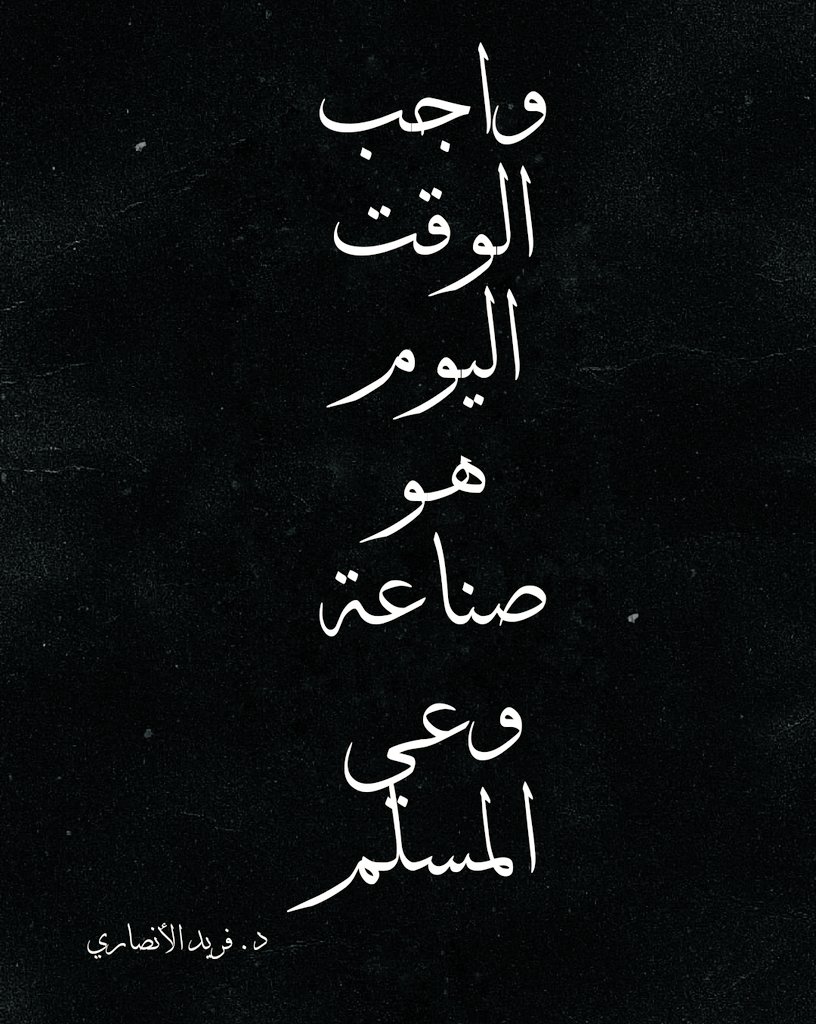 واجب
الوقت
اليوم
هو
صناعة
وعي
المسلم
د. فريد الأنصاري